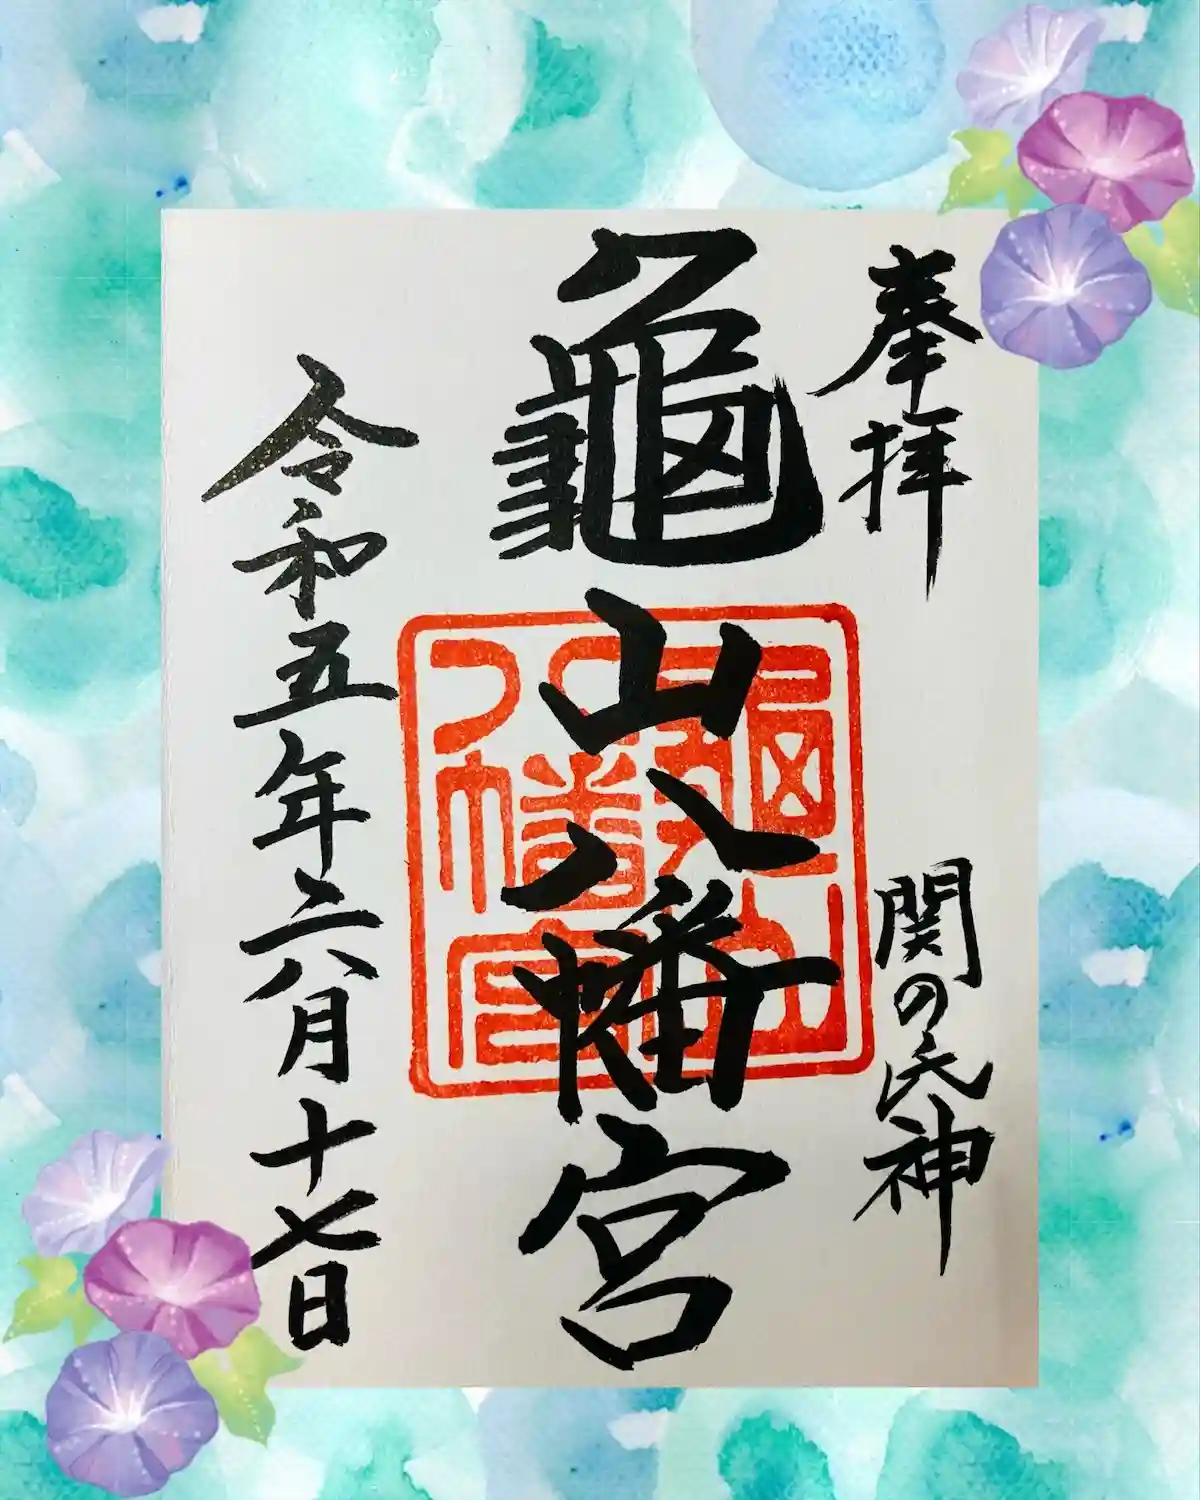 奉拝
関の氏神
龜山八幡宮
龜山
八幡宮
令和五年六月十七日